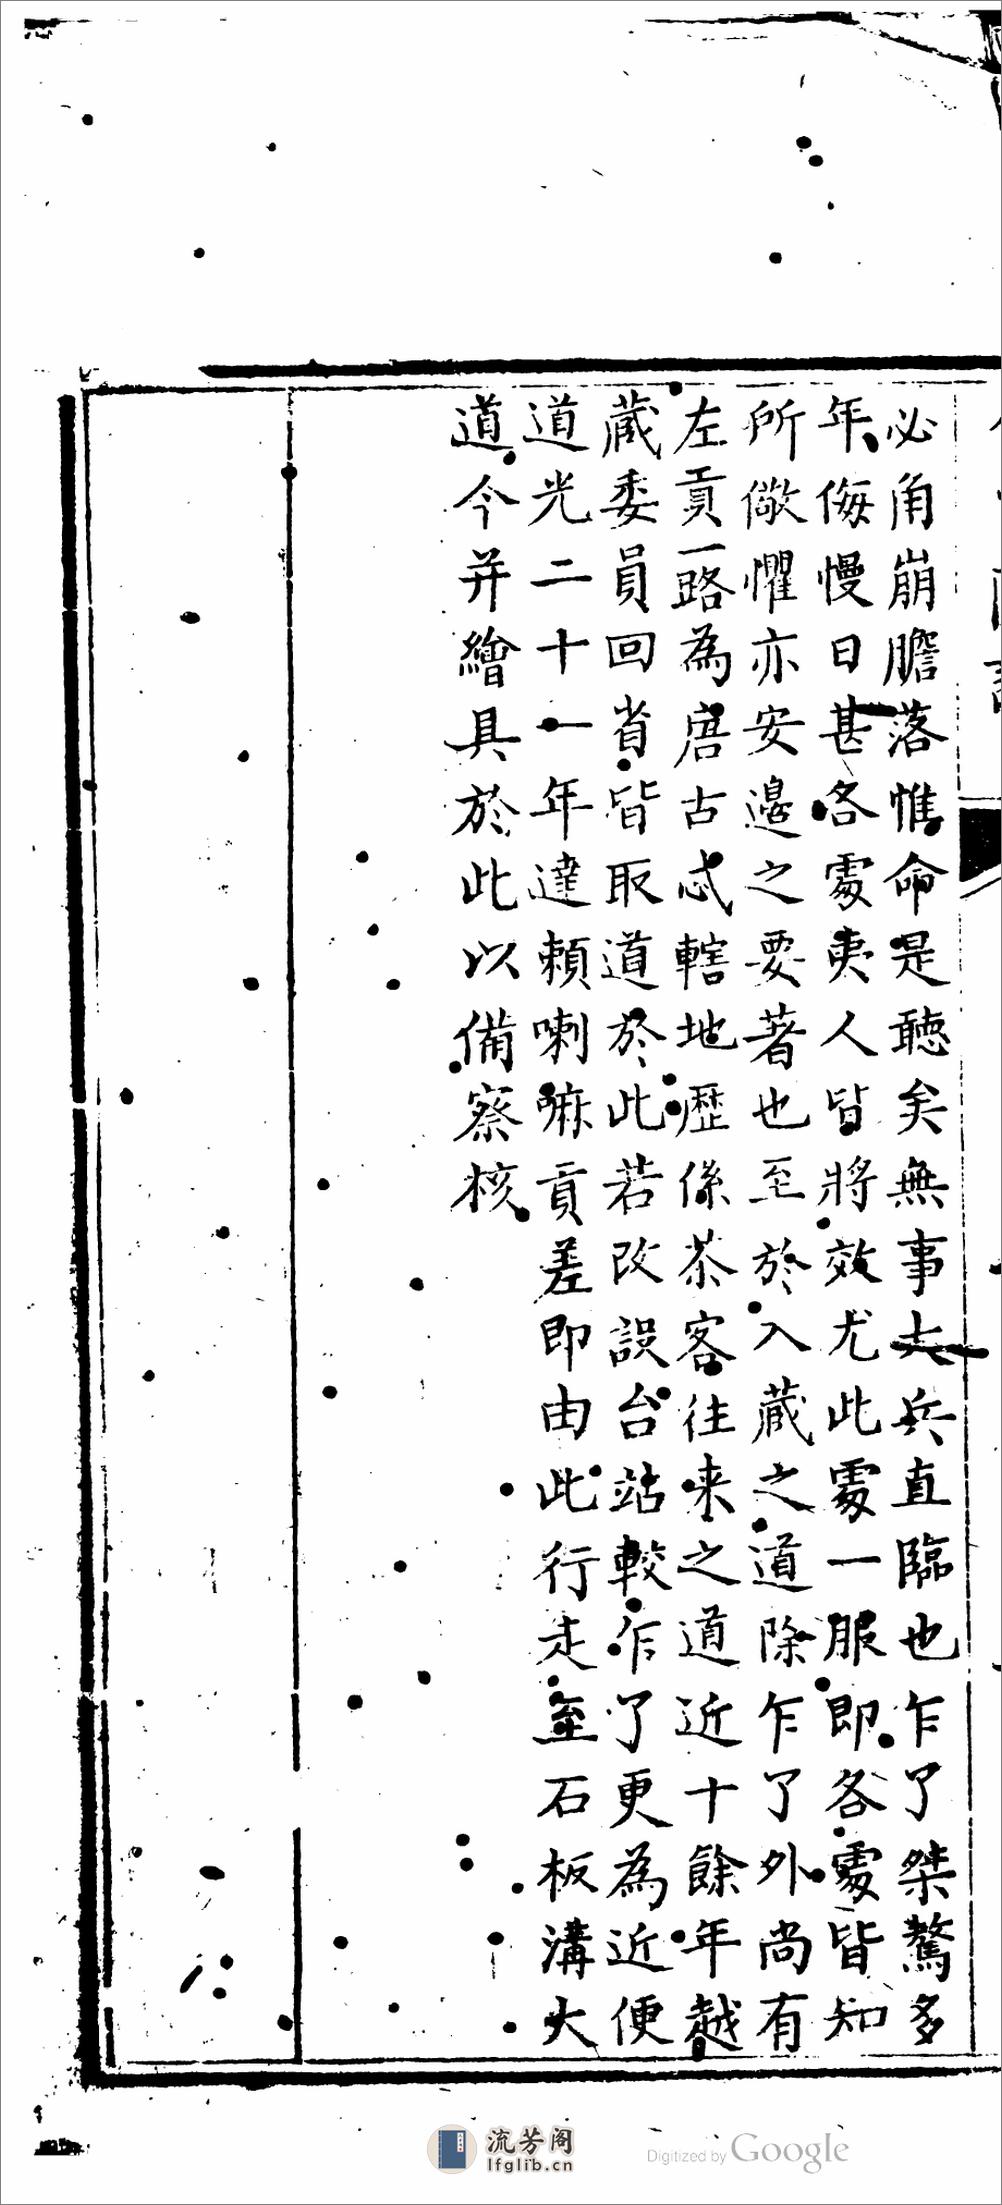 必角崩膽落惟命是聽矣無事大兵直臨也乍了桀驁多
年侮慢日甚各處夷人皆將效尤此處一服即各處皆知
所儆懼亦安邊之要著也至於入藏之道除乍了外尚有
左貢一路為唐古忒轄地歷係茶客往来之道近十餘年越
藏委員回省皆取道於此若改設台站較乍了更為近便
道光二十一年達賴喇嘛貢差即由此行走至石板溝大
道今并繪具於此以備察核
流芳阁
lfglib.cn
Digitized by Google